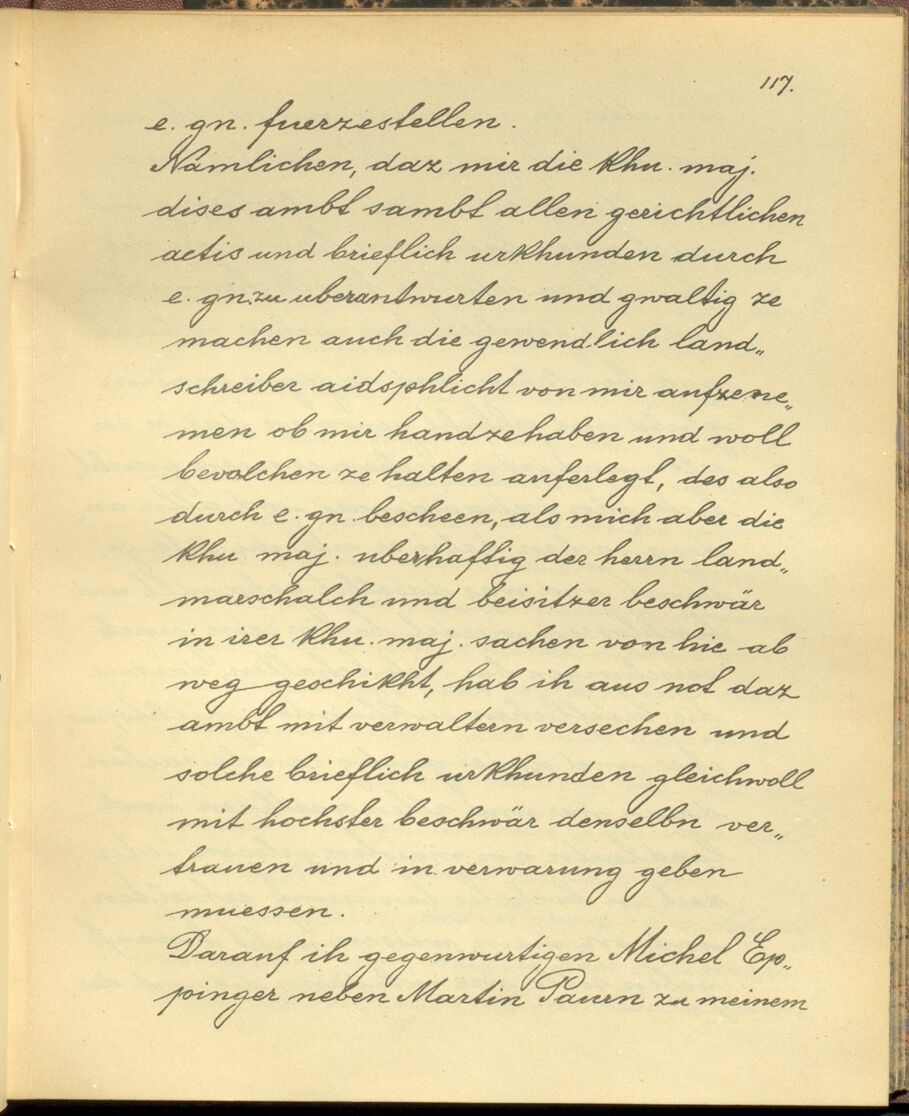 117.
e. gn. fuerzestellen.
Nämlichen, daz mir die khu. maj.
dises ambt sambt allen gerichtlichen
actis und brieflich urkhunden durch
e. gn. zu uberantwurten und gwaltig ze
machen auch die gewendlich land„
schreiber aidsphlicht von mir aufzene„
men ob mir handzehaben und woll
bevolchen ze halten auferlegt, des also
durch e. gn. bescheen, als mich aber die
khu. maj. uberhaftig der herrn land„
marschalch und beisitzer beschwär
in irer khu. maj. sachen von hie ab
weg geschikht, hab ih aus not daz
ambt mit verwaltern versechen und
solche brieflich urkhunden gleichwoll
mit hochster beschwär denselbn ver„
trauen und in verwarung geben
muessen.
Darauf ih gegenwurtigen Michel Ep„
pinger neben Martin Paurn zu meinem